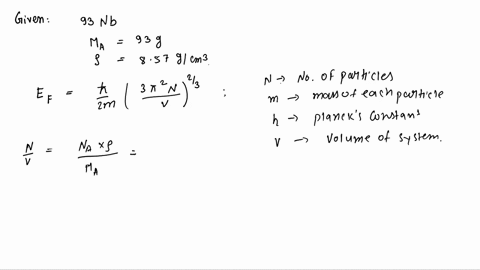 Given: 93 Nb
M_A = 93 g
ρ = 8.57 g/cm3.
E_F = ħ/2m (3π²N/V)^2/3 ;
N → No. of particles
m → mass of each particle
h → planck's constans
V → Volume of system.
N/V = N_A × ρ / M_A =